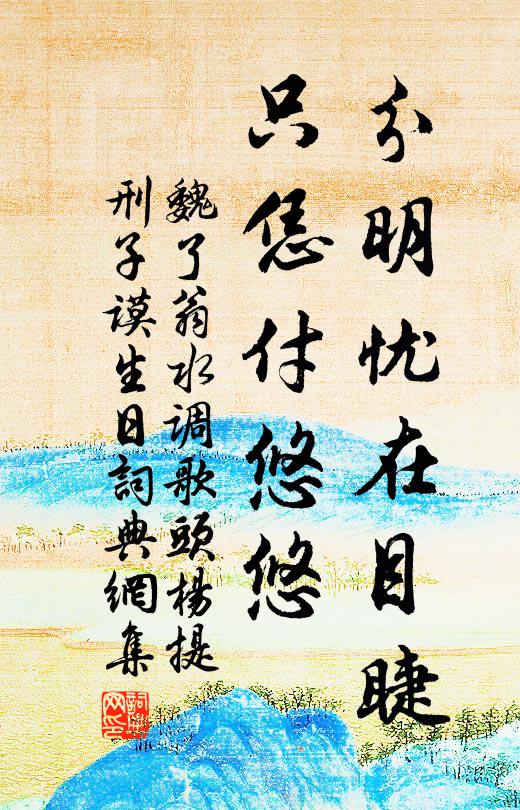 分明忧在目睫
只恁付悠悠
魏了翁水调歌頭楊提
刑子謨生日詞典網集